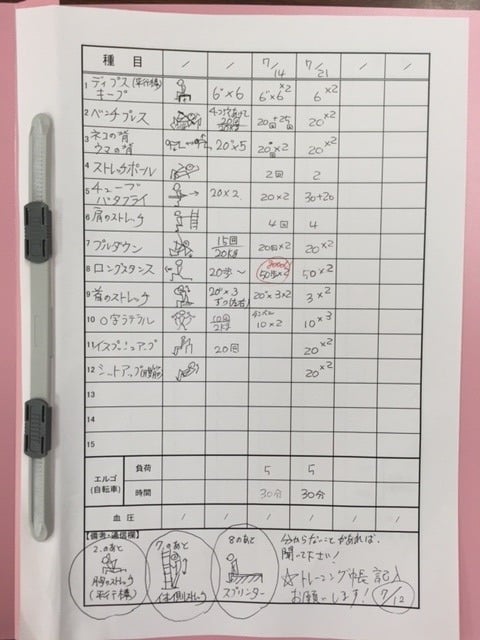 種目 / / 7/14 7/21 / /
1 ディップス(平行棒) キープ 6"×6 6"×6 ×2 6 ×2
2 ベンチプレス 20回+25回 20 ×2
3 ネコの背 ウマの背 20"×5 20回×2 20 ×2
4 ストレッチポール 2回 2
5 チューブ バタフライ 20×2 20×2 30+20
6 肩のストレッチ 4回 4
7 プルダウン 15回 20kg 20回×2 20 ×2
8 ロングスタンス 20歩〜 50歩×2 50×2
9 首のストレッチ 20"×3 ずつ(左右) 20"×3×2 3×2
10 〇字ラテラル 10回 2kg 10×2 10 ×3
11 20回 20 ×2
12 シットアップ 20 ×2
13
14
15
エルゴ (自転車) 負荷 5 5
時間 30分 30分
血圧 / / / / / /
【備考・通信欄】
2.のあと
胸のストレッチ
(平行棒)
7.のあと
体側ストレッチ
8のあと
スプリンター
分からないことがあれば、
聞いて下さい!
☆トレーニング帳 記入
お願いします! 7/12